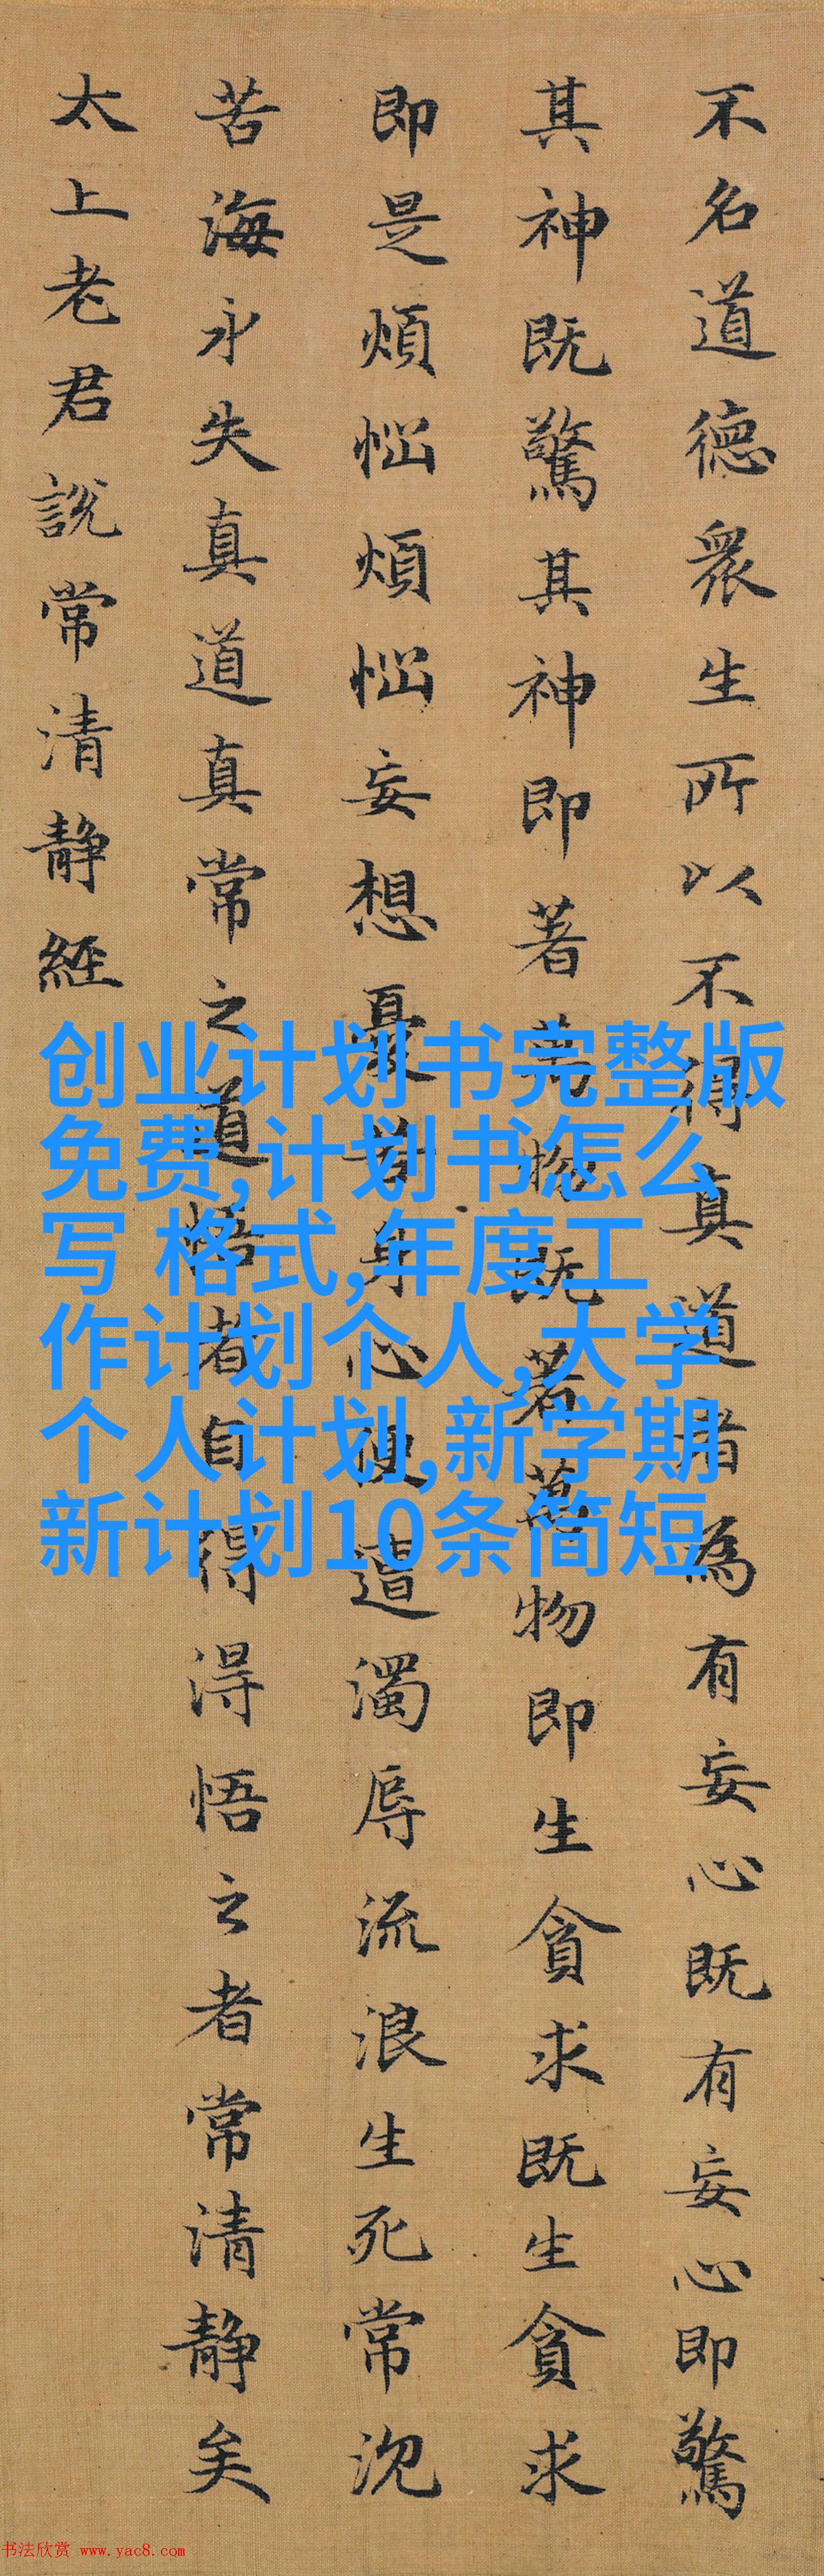 不名道德眾生所以不得真道者為有妄心既有妄心即驚
其神既驚其神即著萬物既著萬物即生貪求既生貪求
即是煩惱煩惱妄想憂苦身心便遭濁辱流浪生死常沉
苦海永失真道真常之道悟者自得得悟之者常清靜矣
太上老君說常清靜經
创业计划书完整版
免费,计划书怎么
写 格式,年度工
作计划个人,大学
个人计划,新学期
新计划10条简短
书法欣赏 www.yac8.com